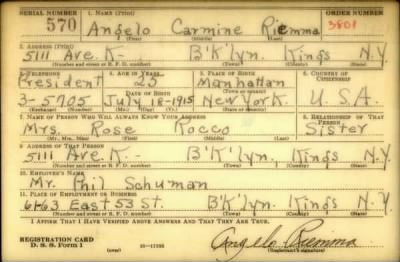 SERIAL NUMBER 1. NAME (Print) ORDER NUMBER
570 Angelo Carmine Riemma 3801
(First) (Middle) (Last)
2. ADDRESS (Print)
5111 Ave. K- B'K'lyn. Kings N.Y.
(Number and street or R. F. D. number) (Town) (County) (State)
3. TELEPHONE 4. AGE IN YEARS 5. PLACE OF BIRTH 6. COUNTRY OF CITIZENSHIP
President 25 Manhattan
DATE OF BIRTH (Town or county)
3-5705 July 18-1915 New York U.S.A.
(Mo.) (Day) (Yr.) (State or country)
7. NAME OF PERSON WHO WILL ALWAYS KNOW YOUR ADDRESS 8. RELATIONSHIP OF THAT PERSON
Mrs. Rose Rocco Sister
(Mr., Mrs., Miss) (First) (Middle) (Last)
9. ADDRESS OF THAT PERSON
5111 Ave. K- B'K'lyn. Kings N.Y.
(Number and street or R. F. D. number) (Town) (County) (State)
10. EMPLOYER'S NAME
Mr. Phil Schuman
11. PLACE OF EMPLOYMENT OR BUSINESS
East 53 St. B'K'lyn. Kings N.Y.
(Number and street or R. F. D. number) (Town) (County) (State)
I AFFIRM THAT I HAVE VERIFIED ABOVE ANSWERS AND THAT THEY ARE TRUE.
REGISTRATION CARD
D. S. S. Form 1 Angelo Riemma
(Registrant's signature)